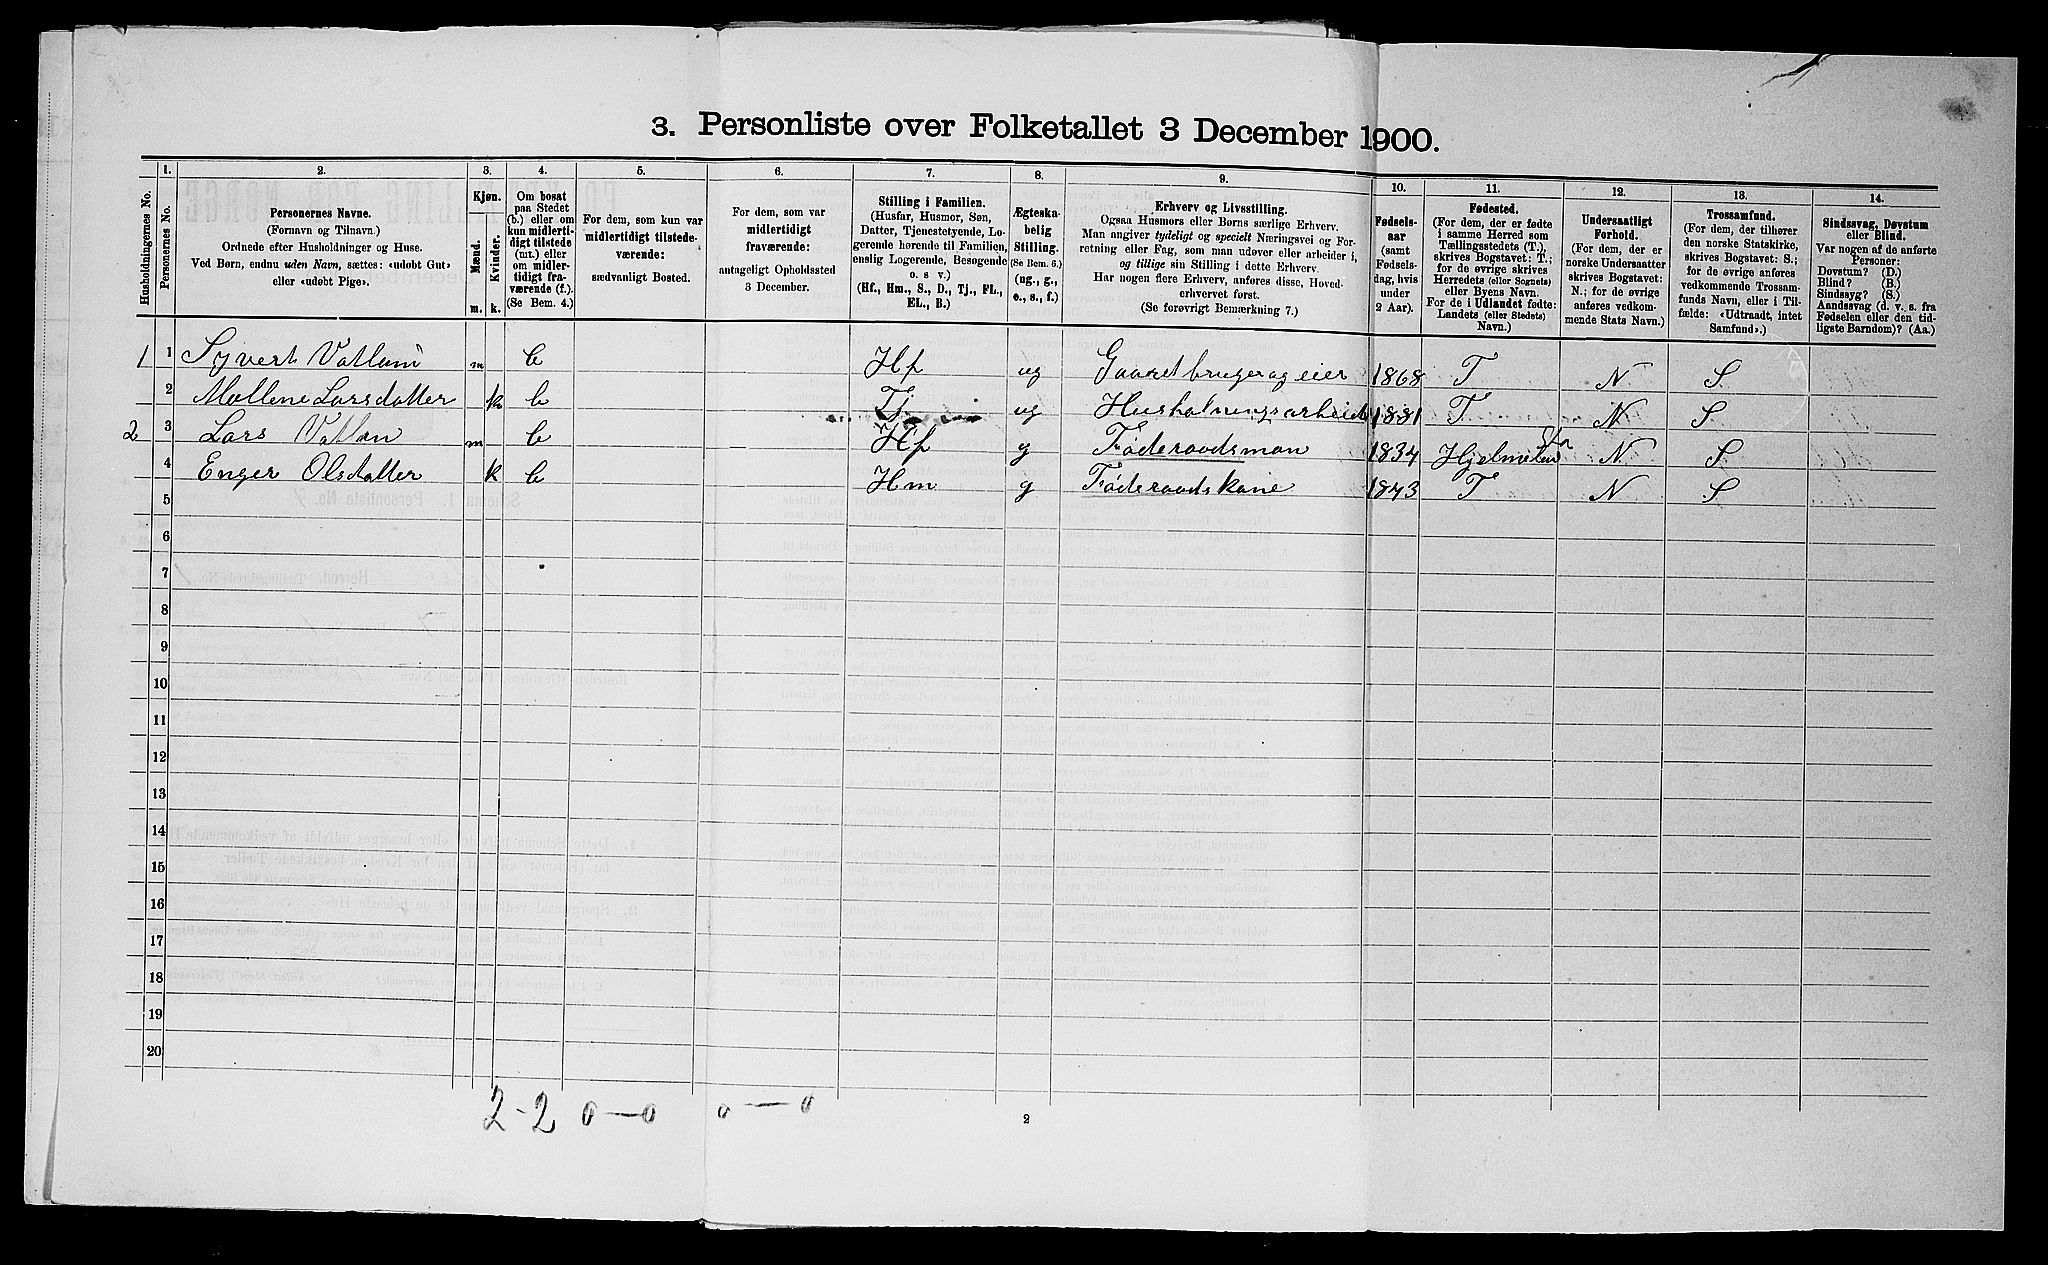 3. Personliste over Folketallet 3 December 1900.
Husholdningernes No.
1.
Personernes No.
2.
Personernes Navne.
(Fornavn og Tilnavn.)
Ordnede efter Husholdninger og Huse.
Ved Børn, endnu uden Navn, sættes: «udøbt Gut»
eller «udøbt Pige».
3.
Kjøn.
Mænd.
Kvinder.
m. k.
4.
Om bosat
paa Stedet
(b.) eller om
kun midlerti-
digt tilstede
(mt.) eller
om midler-
tidigt fra-
værende (f.).
(Se Bem. 4.)
5.
For dem, som kun var
midlertidigt tilstede-
værende:
sædvanligt Bosted.
6.
For dem, som var
midlertidigt
fraværende:
antageligt Opholdssted
3 December.
7.
Stilling i Familien.
(Husfar, Husmor, Søn,
Datter, Tjenestetyende, Lo-
gerende hørende til Familien,
enslig Logerende, Besøgende
o. s. v.)
(Hf., Hm., S., D., Tj., FL.,
EL., B.)
8.
Ægteska-
belig
Stilling.
(Se Bem. 6.)
(ug., g.,
e., s., f.)
9.
Erhverv og Livsstilling.
Ogsaa Husmors eller Børns særlige Erhverv.
Man angiver tydeligt og specielt Næringsvei og For-
retning eller Fag, som man udøver eller arbeider i,
og tillige sin Stilling i dette Erhverv.
Har nogen flere Erhverv, anføres disse, Hoved-
erhvervet først.
(Se forøvrigt Bemærkning 7.)
10.
Fødsels-
aar
(samt
Fødsels-
dag, hvis
under
2 Aar).
11.
Fødested.
(For dem, der er fødte
i samme Herred som
Tællingsstedets (T.),
skrives Bogstavet: T.;
for de øvrige skrives
Herredets (eller Sognets)
eller Byens Navn.
For de i Udlandet fødte:
Landets (eller Stedets)
Navn.)
12.
Undersaatligt
Forhold.
(For dem, der er
norske Undersaatter
skrives Bogstavet:
N.; for de øvrige
anføres vedkom-
mende Stats Navn.)
13.
Trossamfund.
(For dem, der tilhører
den norske Statskirke,
skrives Bogstavet: S.;
for de øvrige anføres
vedkommende Trossam-
funds Navn, eller i Til-
fælde: «Udtraadt, intet
Samfund».)
14.
Sindssvag, Døvstum
eller Blind.
Var nogen af de anførte
Personer:
Døvstum? (D.)
Blind? (B.)
Sindssyg? (S.)
Aandssvag (d. v. s. fra
Fødselen eller den tid-
ligste Barndom)? (Aa.)
1 1 Syvert Vatland m b Hf ug Gaardbruger og eier 1868 T N S
2 Mallene Larsdatter k b Tj ug Husholningsarbeide 1881 T N S
2 3 Lars Vatlan m b Hf g Føderaadsman 1834 N S
4 Enger Olsdatter k b Hm g Føderaadskone 1843 T N S
5
6
7
8
9
10
11
12
13
14
15
16
17
18
19
20
2-2 0—0 0—0
2